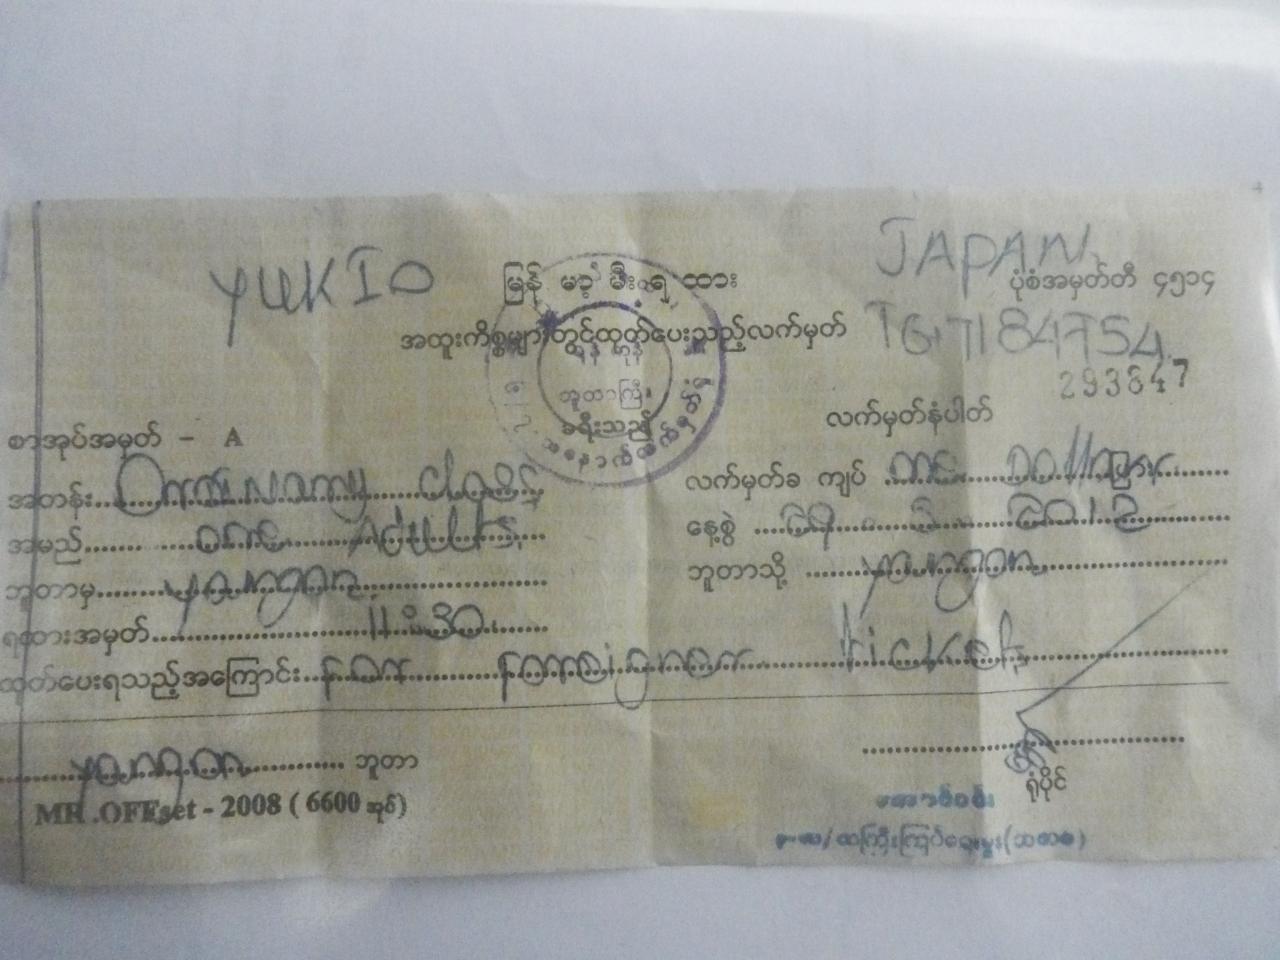 YUKIO
JAPAN
မြန် မာ့ မီး ရ ထား
ပုံစံအမှတ်တီ ၄၅၁၄
အထူးကိစ္စများတွင်ထုတ်ပေးသည့်လက်မှတ်
TG7184754
293647
ဘူတာကြီး
ခရီးသည်
လက်မှတ်နံပါတ်
စာအုပ်အမှတ် - A
အတန်း Ordinary class
လက်မှတ်ခ ကျပ် one Dollar
အမည် one Adult
နေ့စွဲ 2012
ဘူတာမှ yangon
ဘူတာသို့ yangon
ရထားအမှတ် 11:30
ထုတ်ပေးရသည့်အကြောင်း For Foreigner ticket
yangon ဘူတာ
ရုံပိုင်
MR.OFFset - 2008 ( 6600 အုပ်)